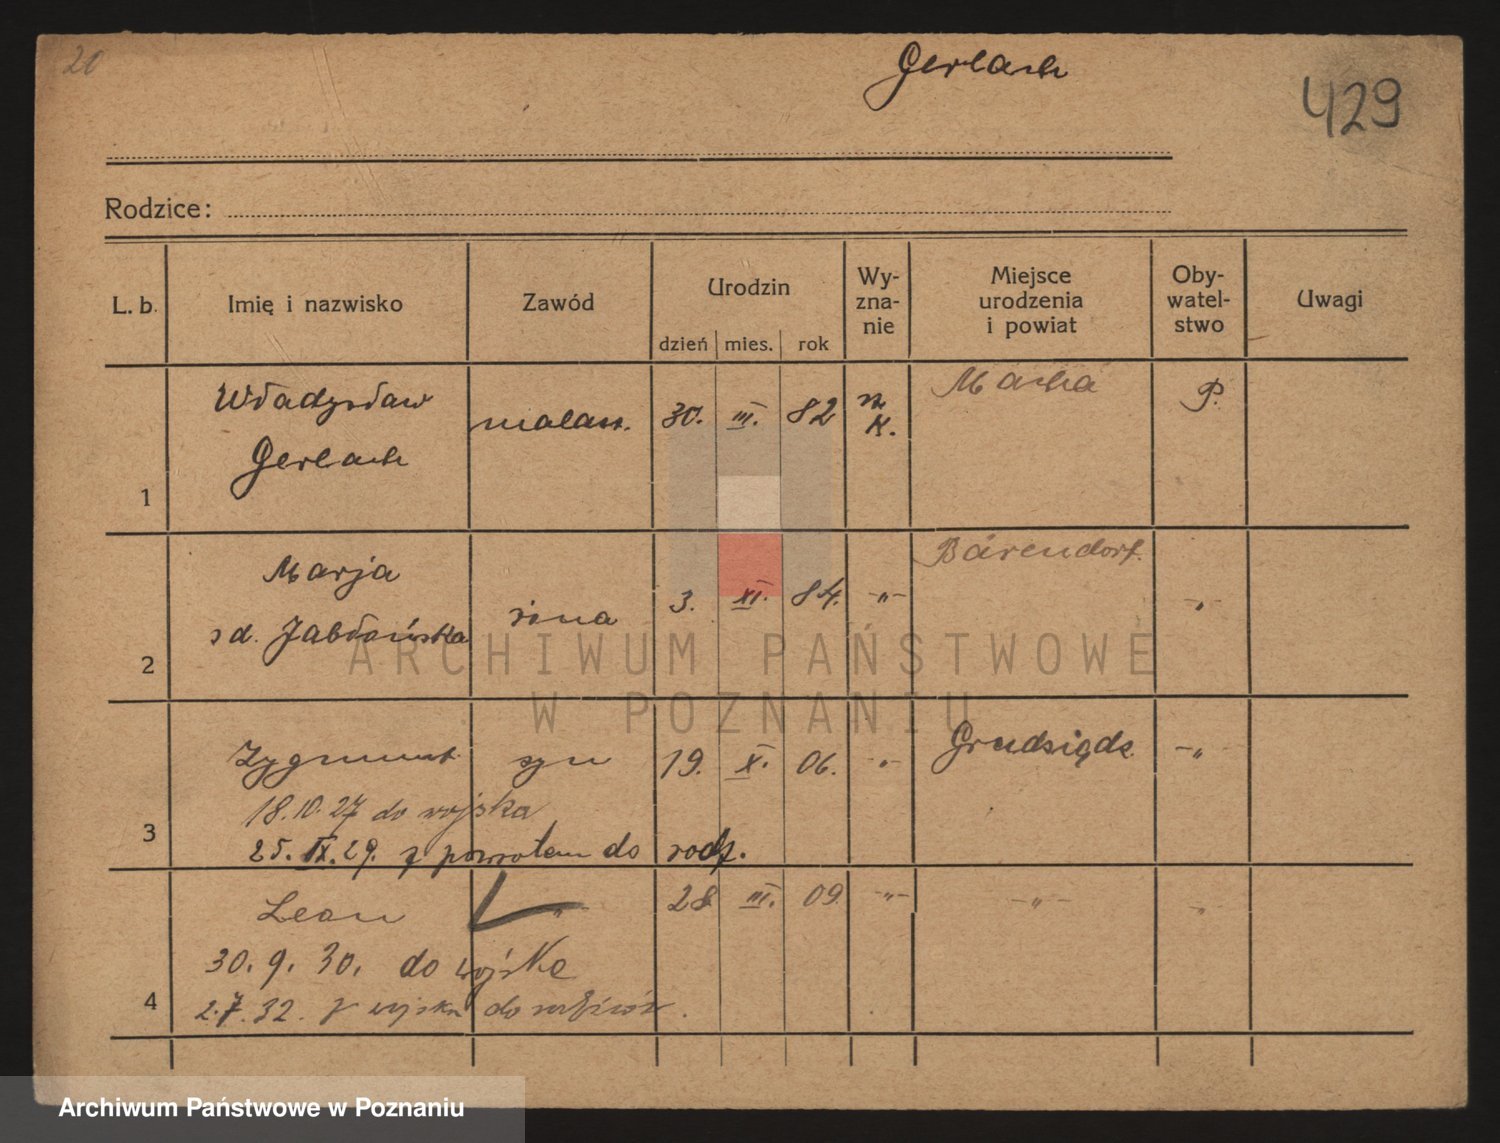 20
Gerlach
429
Rodzice:
L. b. Imię i nazwisko Zawód Urodzin Wy- Miejsce Oby- Uwagi
zna- urodzenia watel-
nie i powiat stwo
dzień mies. rok
Władysław malarz. 30. III. 82 rz. K. Macha P.
Gerlach
1
Marja żona 3. XI. 84. -"- Bärendorf. -"-
zd. Jabłońska
2
Zygmunt syn 19. X. 06. -"- Grudziądz -"-
18.10.27 do wojska
25. IX. 29. z powrotem do rodz.
3
Leon -"- 28 III. 09. -"- -"- -"-
30. 9. 30. do wojska
2.7.32. z wojska do rodziców.
4
ARCHIWUM PAŃSTWOWE
W POZNANIU
Archiwum Państwowe w Poznaniu